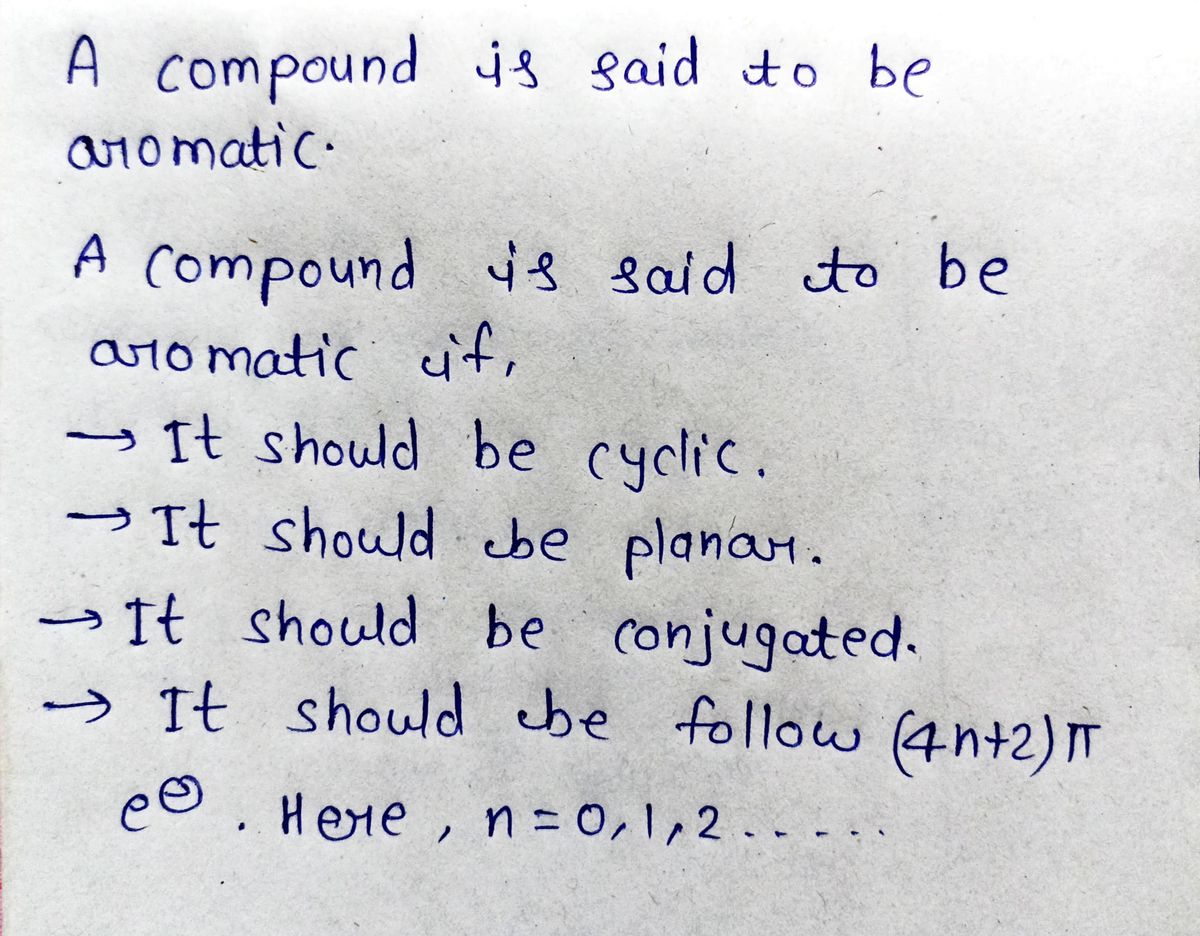 A compound is said to be
aromatic.
A compound is said to be
aromatic if,
→ It should be cyclic.
→ It should be planar.
→ It should be conjugated.
→ It should be follow (4n+2)π
e⊖. Here, n=0,1,2......